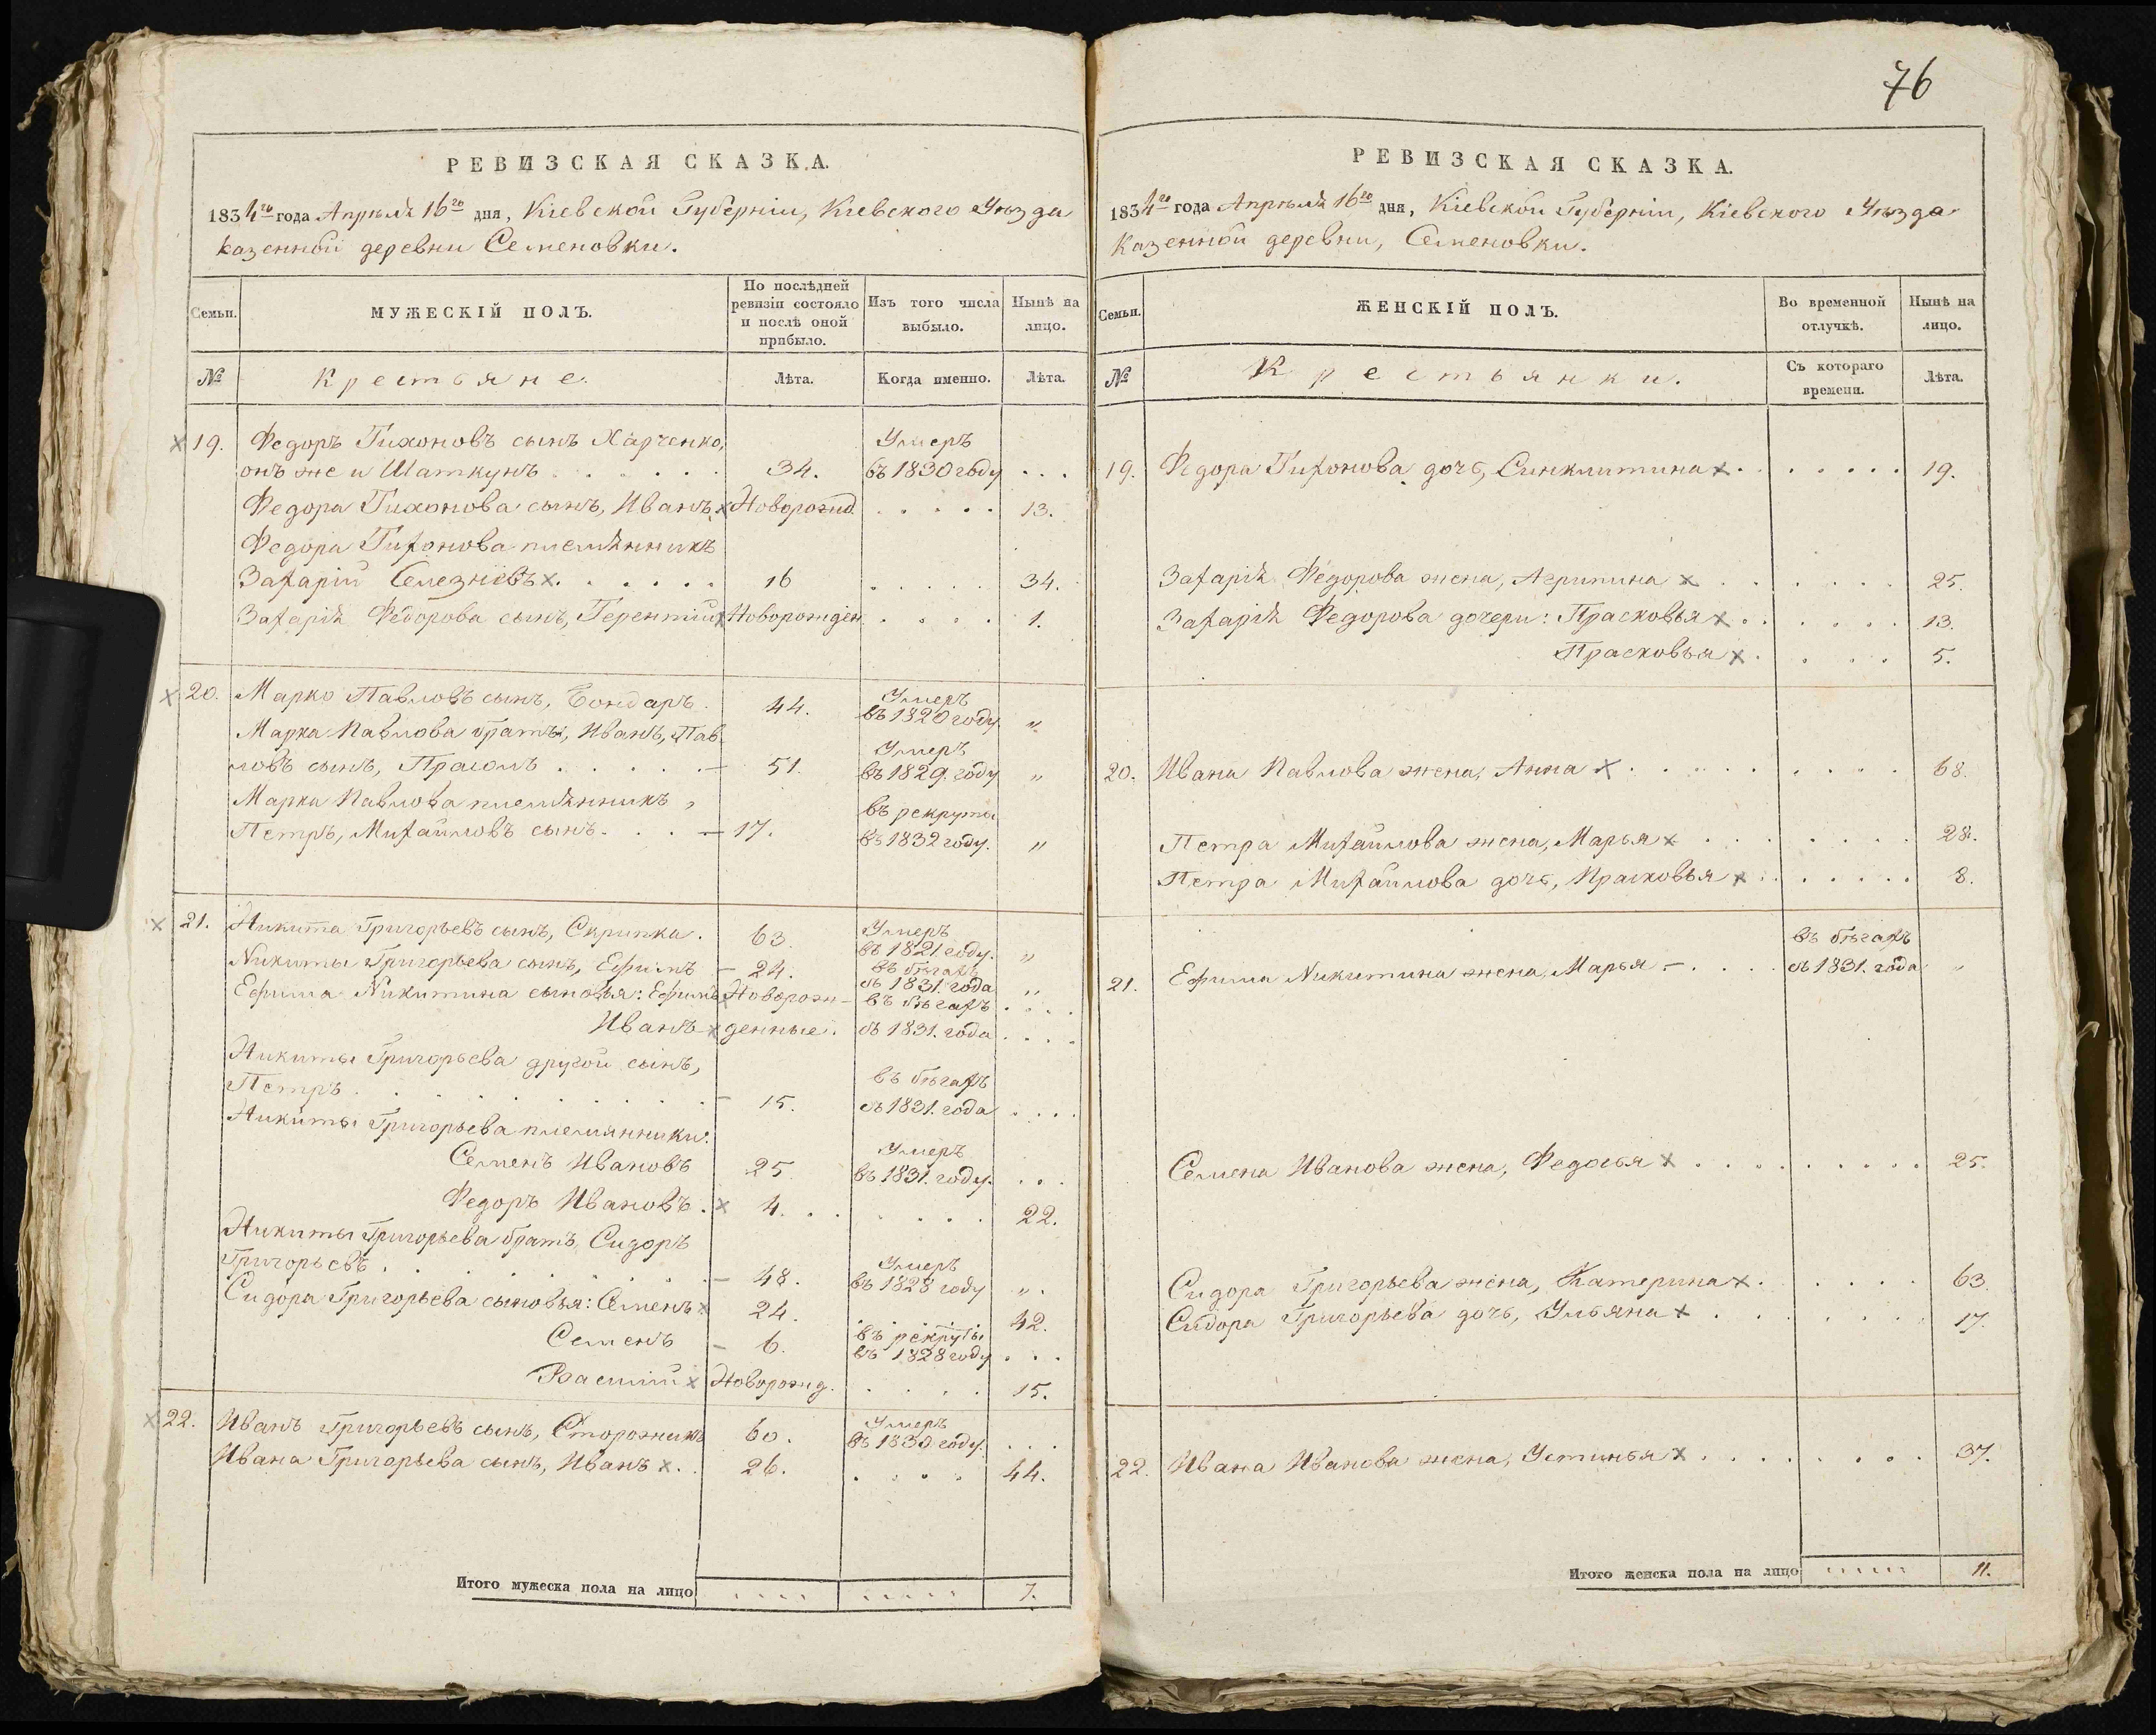 РЕВИЗСКАЯ СКАЗКА.
1834го года Апрѣля 16го дня, Кіевской Губерніи, Кіевского Уѣзда
казенной деревни Семеновки.
Семьи.
МУЖЕСКІЙ ПОЛЪ.
По послѣдней
ревизіи состояло
и послѣ оной
прибыло.
Изъ того числа
выбыло.
Нынѣ на
лицо.
№
Крестьяне.
Лѣта.
Когда именно.
Лѣта.
Умеръ
19. Федоръ Тихоновъ сынъ Харченко,
онъ же и Шаткунъ 34. въ 1830 году ...
Федора Тихонова сынъ, Иванъ x Новорожд. 13.
Федора Тихонова племѣнникъ
Захарій x 16 34.
Захарія Федорова сынъ, Терентій x Новорожден. 1.
x 20. Марко Павловъ сынъ, Бондарь. 44. Умеръ
въ 1820 году. „
Марка Павлова братъ, Иванъ, Пав-
ловъ сынъ, 51. Умеръ
въ 1829. году „
Марка Павлова племѣнникъ,
Петръ, Михайловъ сынъ. 17. въ рекруты
въ 1832 году. „
x 21. Никита Григорьевъ сынъ, Скрипка. 63. Умеръ
въ 1821. году. „
Никиты Григорьева сынъ, Ефимъ 24. въ бѣгахъ
съ 1831. года „
Ефима Никитина сыновья: Ефимъ Новорож- въ бѣгахъ
Иванъ x денные. съ 1831. года
Никиты Григорьева другой сынъ,
Петръ 15. въ бѣгахъ
съ 1831. года
Никиты Григорьева племянники:
Семенъ Ивановъ 25. Умеръ
въ 1831. году.
Федоръ Ивановъ. x 4. 22.
Никиты Григорьева братъ, Сидоръ
Григорьевъ 48. Умеръ
въ 1828 году „
Сидора Григорьева сыновья: Семенъ x 24. 42.
Семенъ – 6. въ рекруты
въ 1828 году
Василий x Новорожд. 15.
x 22. Иванъ Григорьевъ сынъ, Сторожикъ 60. Умеръ
въ 1830. году.
Ивана Григорьева сынъ, Иванъ x. 26. 44.
Итого мужеска пола на лицо 7.
76
РЕВИЗСКАЯ СКАЗКА.
1834го года Апрѣля 16го дня, Кіевской Губерніи, Кіевского Уѣзда
Казенной деревни, Семеновки.
Семьи.
ЖЕНСКІЙ ПОЛЪ.
Во временной
отлучкѣ.
Нынѣ на
лицо.
№
Крестьянки.
Съ котораго
времени.
Лѣта.
19. Федора Тихонова дочь, Синклитина x 19.
Захарія Федорова жена, Агрипина x 25.
Захарія Федорова дочери: Прасковья x 13.
Прасковья x 5.
20. Ивана Павлова жена, Анна x 68.
Петра Михайлова жена, Марья x 28.
Петра Михайлова дочь, Прасковья x 8.
въ бѣгахъ
21. Ефима Никитина жена, Марья – съ 1831. года „
Семена Иванова жена, Федосья x 25.
Сидора Григорьева жена, Катерина x 63.
Сидора Григорьева дочь, Ульяна x 17.
22. Ивана Иванова жена, Устинья x 37.
Итого женска пола на лицо 11.